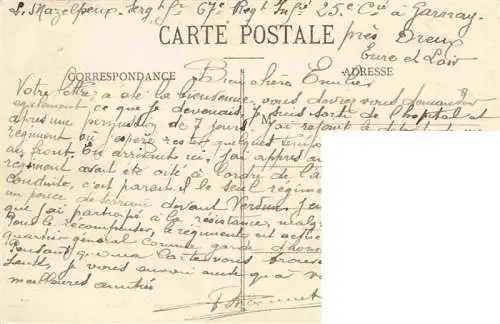 Mazelpeux Sergt fr 67e Regt Infie 25e Cie à Garnay
CARTE POSTALE près Dreux
Eure et Loir
CORRESPONDANCE ADRESSE
Bien chère Emilie
Votre lettre a été la bienvenue, vous devriez vous demander
également ce que je devenais. Je suis sorti de l'hopital et
après une permission de 7 jours, j'ai rejoint le
régiment où j'espère rester quelques temps
au front. En arrivant ici j'ai appris
régiment avait été cité à l'ordre de l'a
conduite, c'est parait-il le seul régime
un pouce de terrain devant Verdun. J'ai
que j'ai participé à la résistance, malg
Pour le récompenser, le régiment est
quartier général comme garde d'honneur
Pensant que ma carte vous trouvera
santé, je vous envoie ainsi qu'à
meilleures amitiés